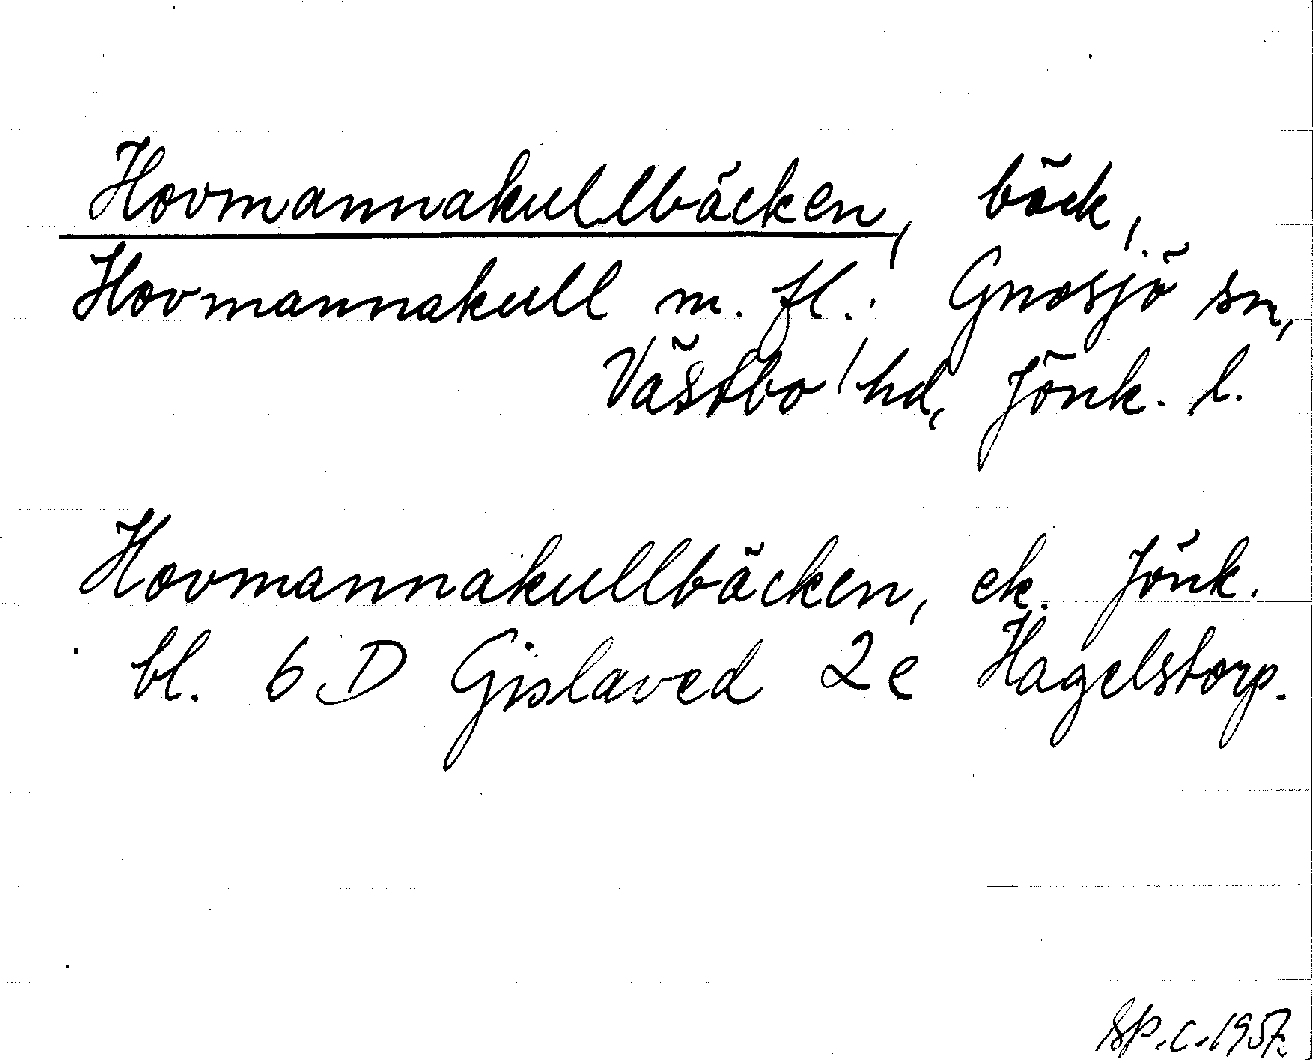 Hovmannakullbäcken, bäck,
Hovmannakull m. fl. Gnosjö sn,
Västbo hd, Jönk. l.
Hovmannakullbäcken, ek. Jönk.
bl. 6 D Gislaved 2 e Hagelstorp.
c. 1957.